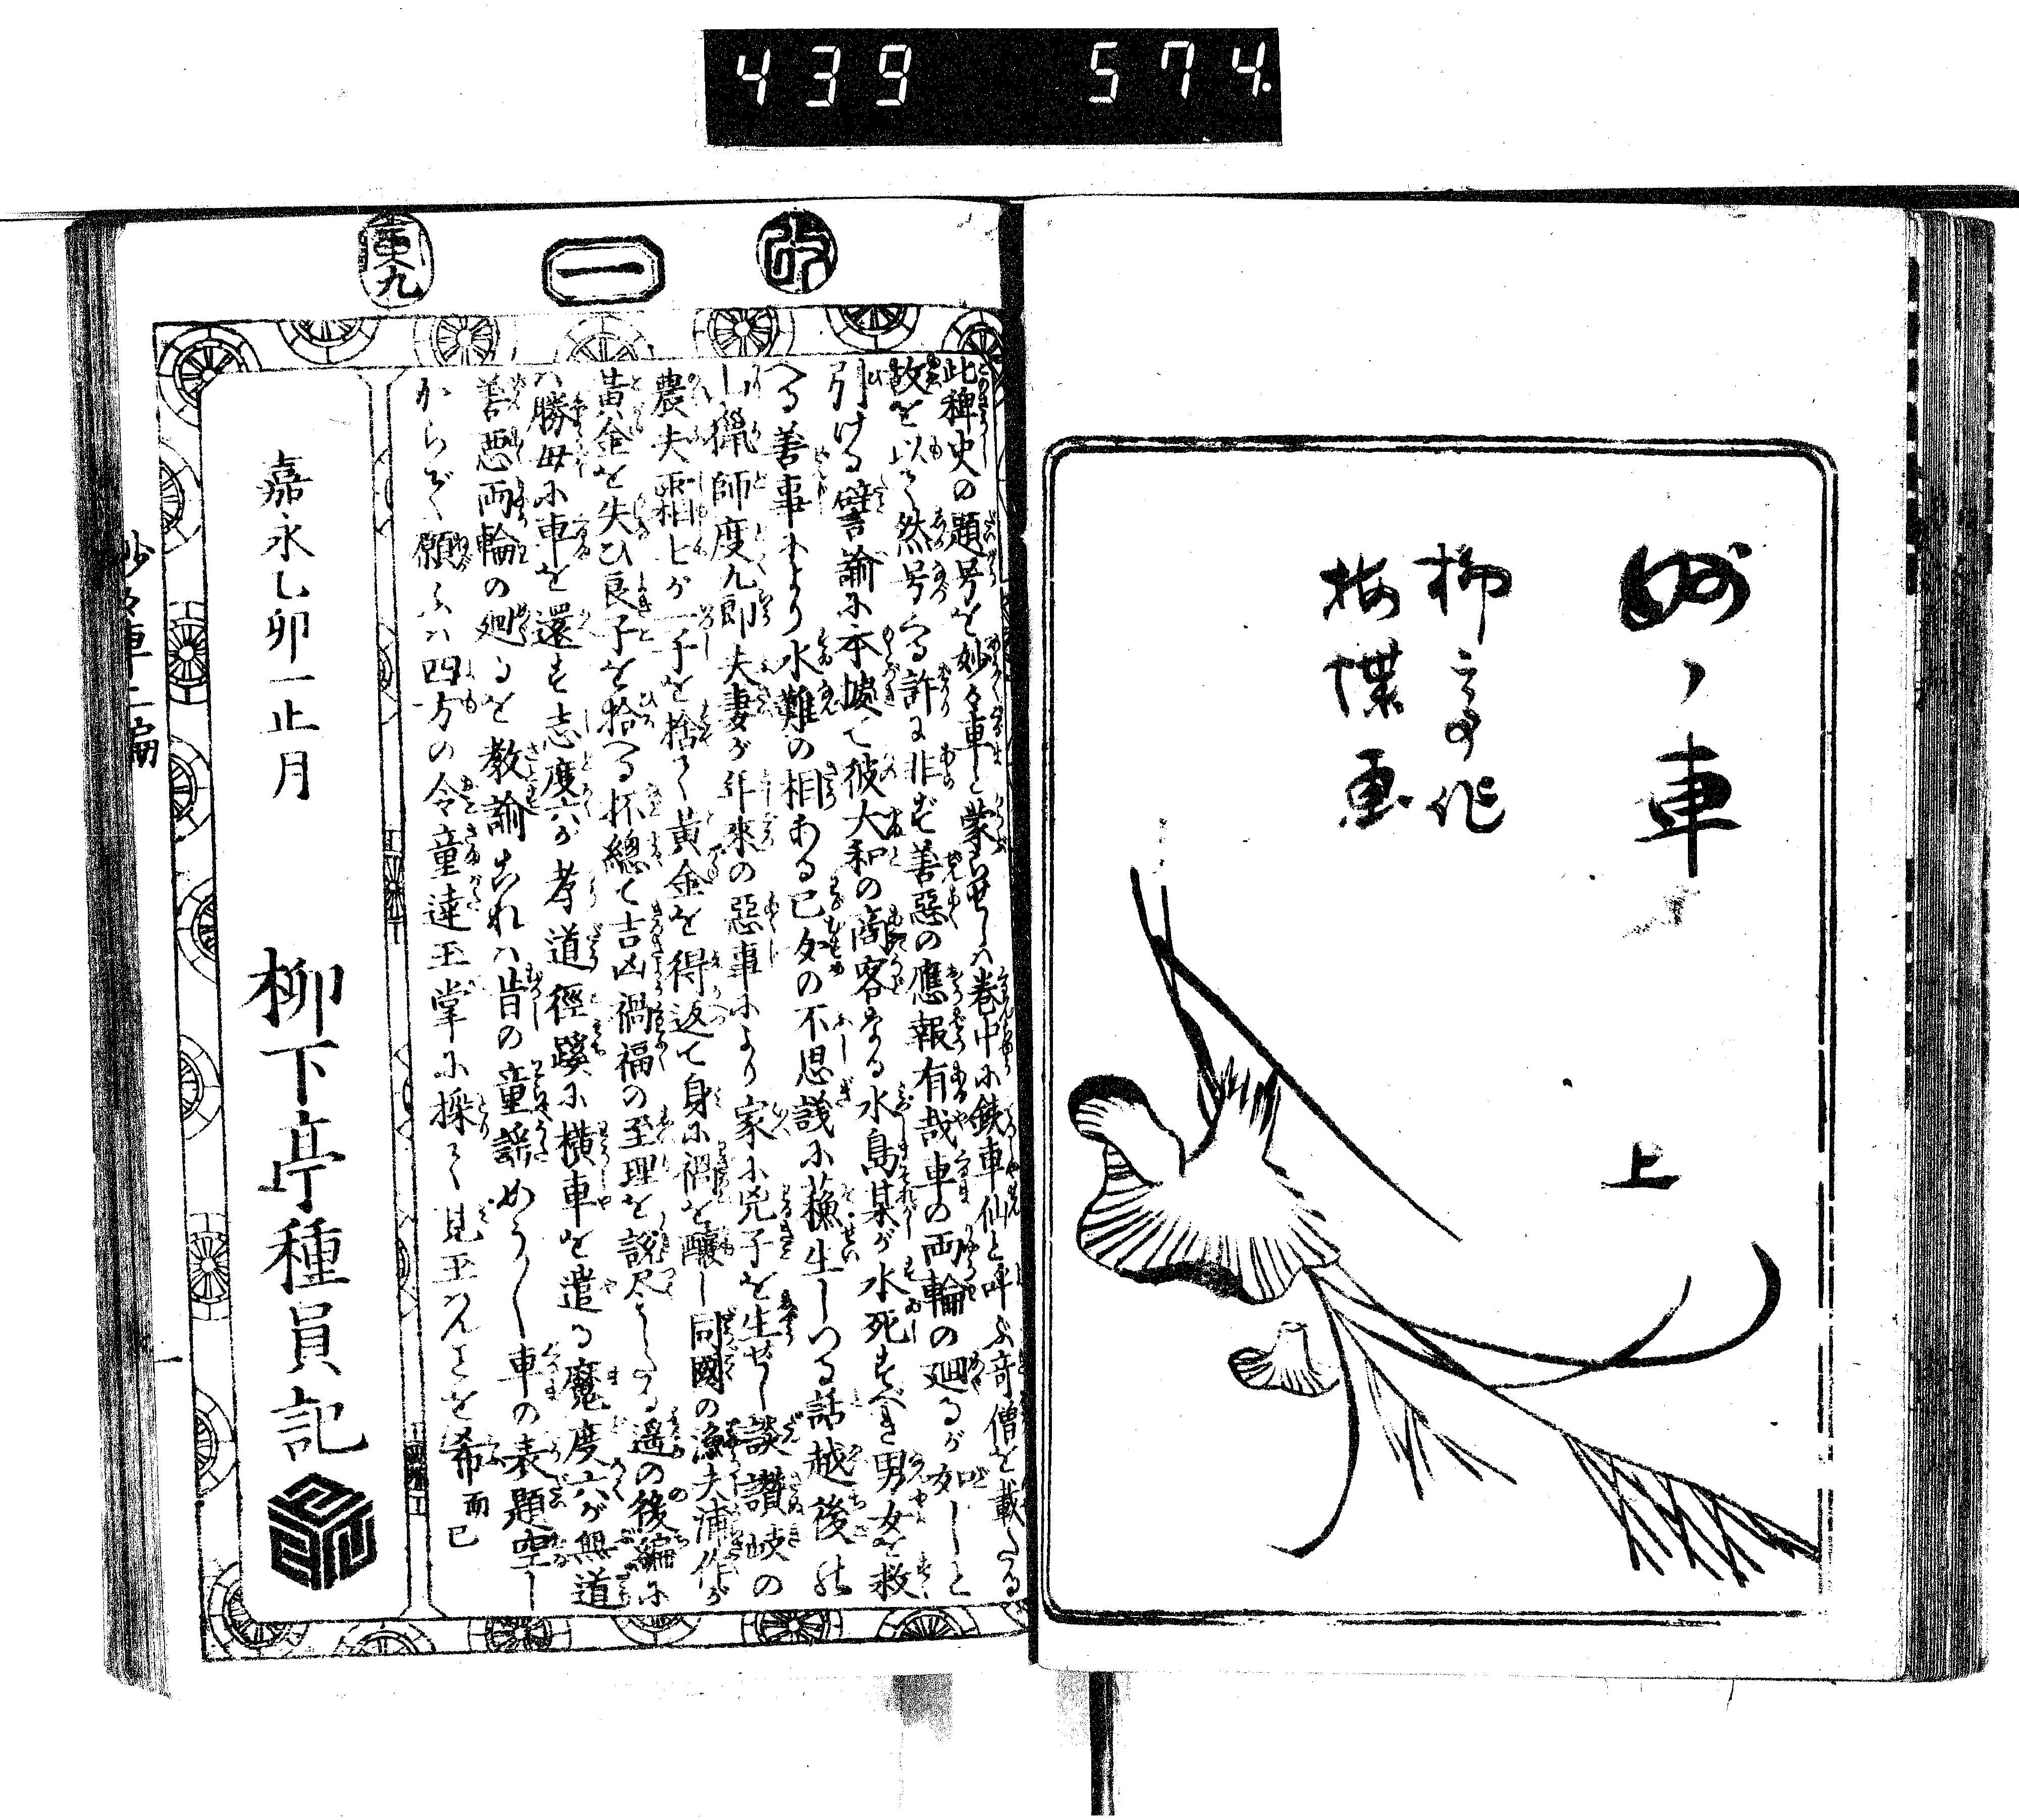 439 574
妙々車
柳亭作
梅蝶画
上
改
寅九
一
此稗史の題号を妙々車と蒙らせしハ巻中に鉄車仙と呼ぶ奇僧を載たる
故を以て然号る許に非ず善悪の應報有哉車の両輪の廻るが如しと
引ける譬諭に本据て彼大和の商客なる水島某が水死すべき男女を救
へる善事により水難の相ある已女の不思議に蘓生しつる話越後の
猟師度九郎夫妻が年來の悪事により家に児子を生せし談讃岐の
農夫霜七が一子を捨て黄金を得返て身に禍を醸し同國の漁夫浦作が
黄金を失ひ良子を拾へる抔總て吉凶禍福の至理を説尽したる遥の後編に
ハ勝母に車を還す志度六が孝道徑蹊に横車を遣る魔度六が無道
善悪両輪の廻るを教諭これハ昔の童謡めうめうし車の表題空し
からず願ふハ四方の令童達玉掌に採て見玉ハんことを希而已
嘉永乙卯一止月
柳下亭種員記
妙々車二編
一